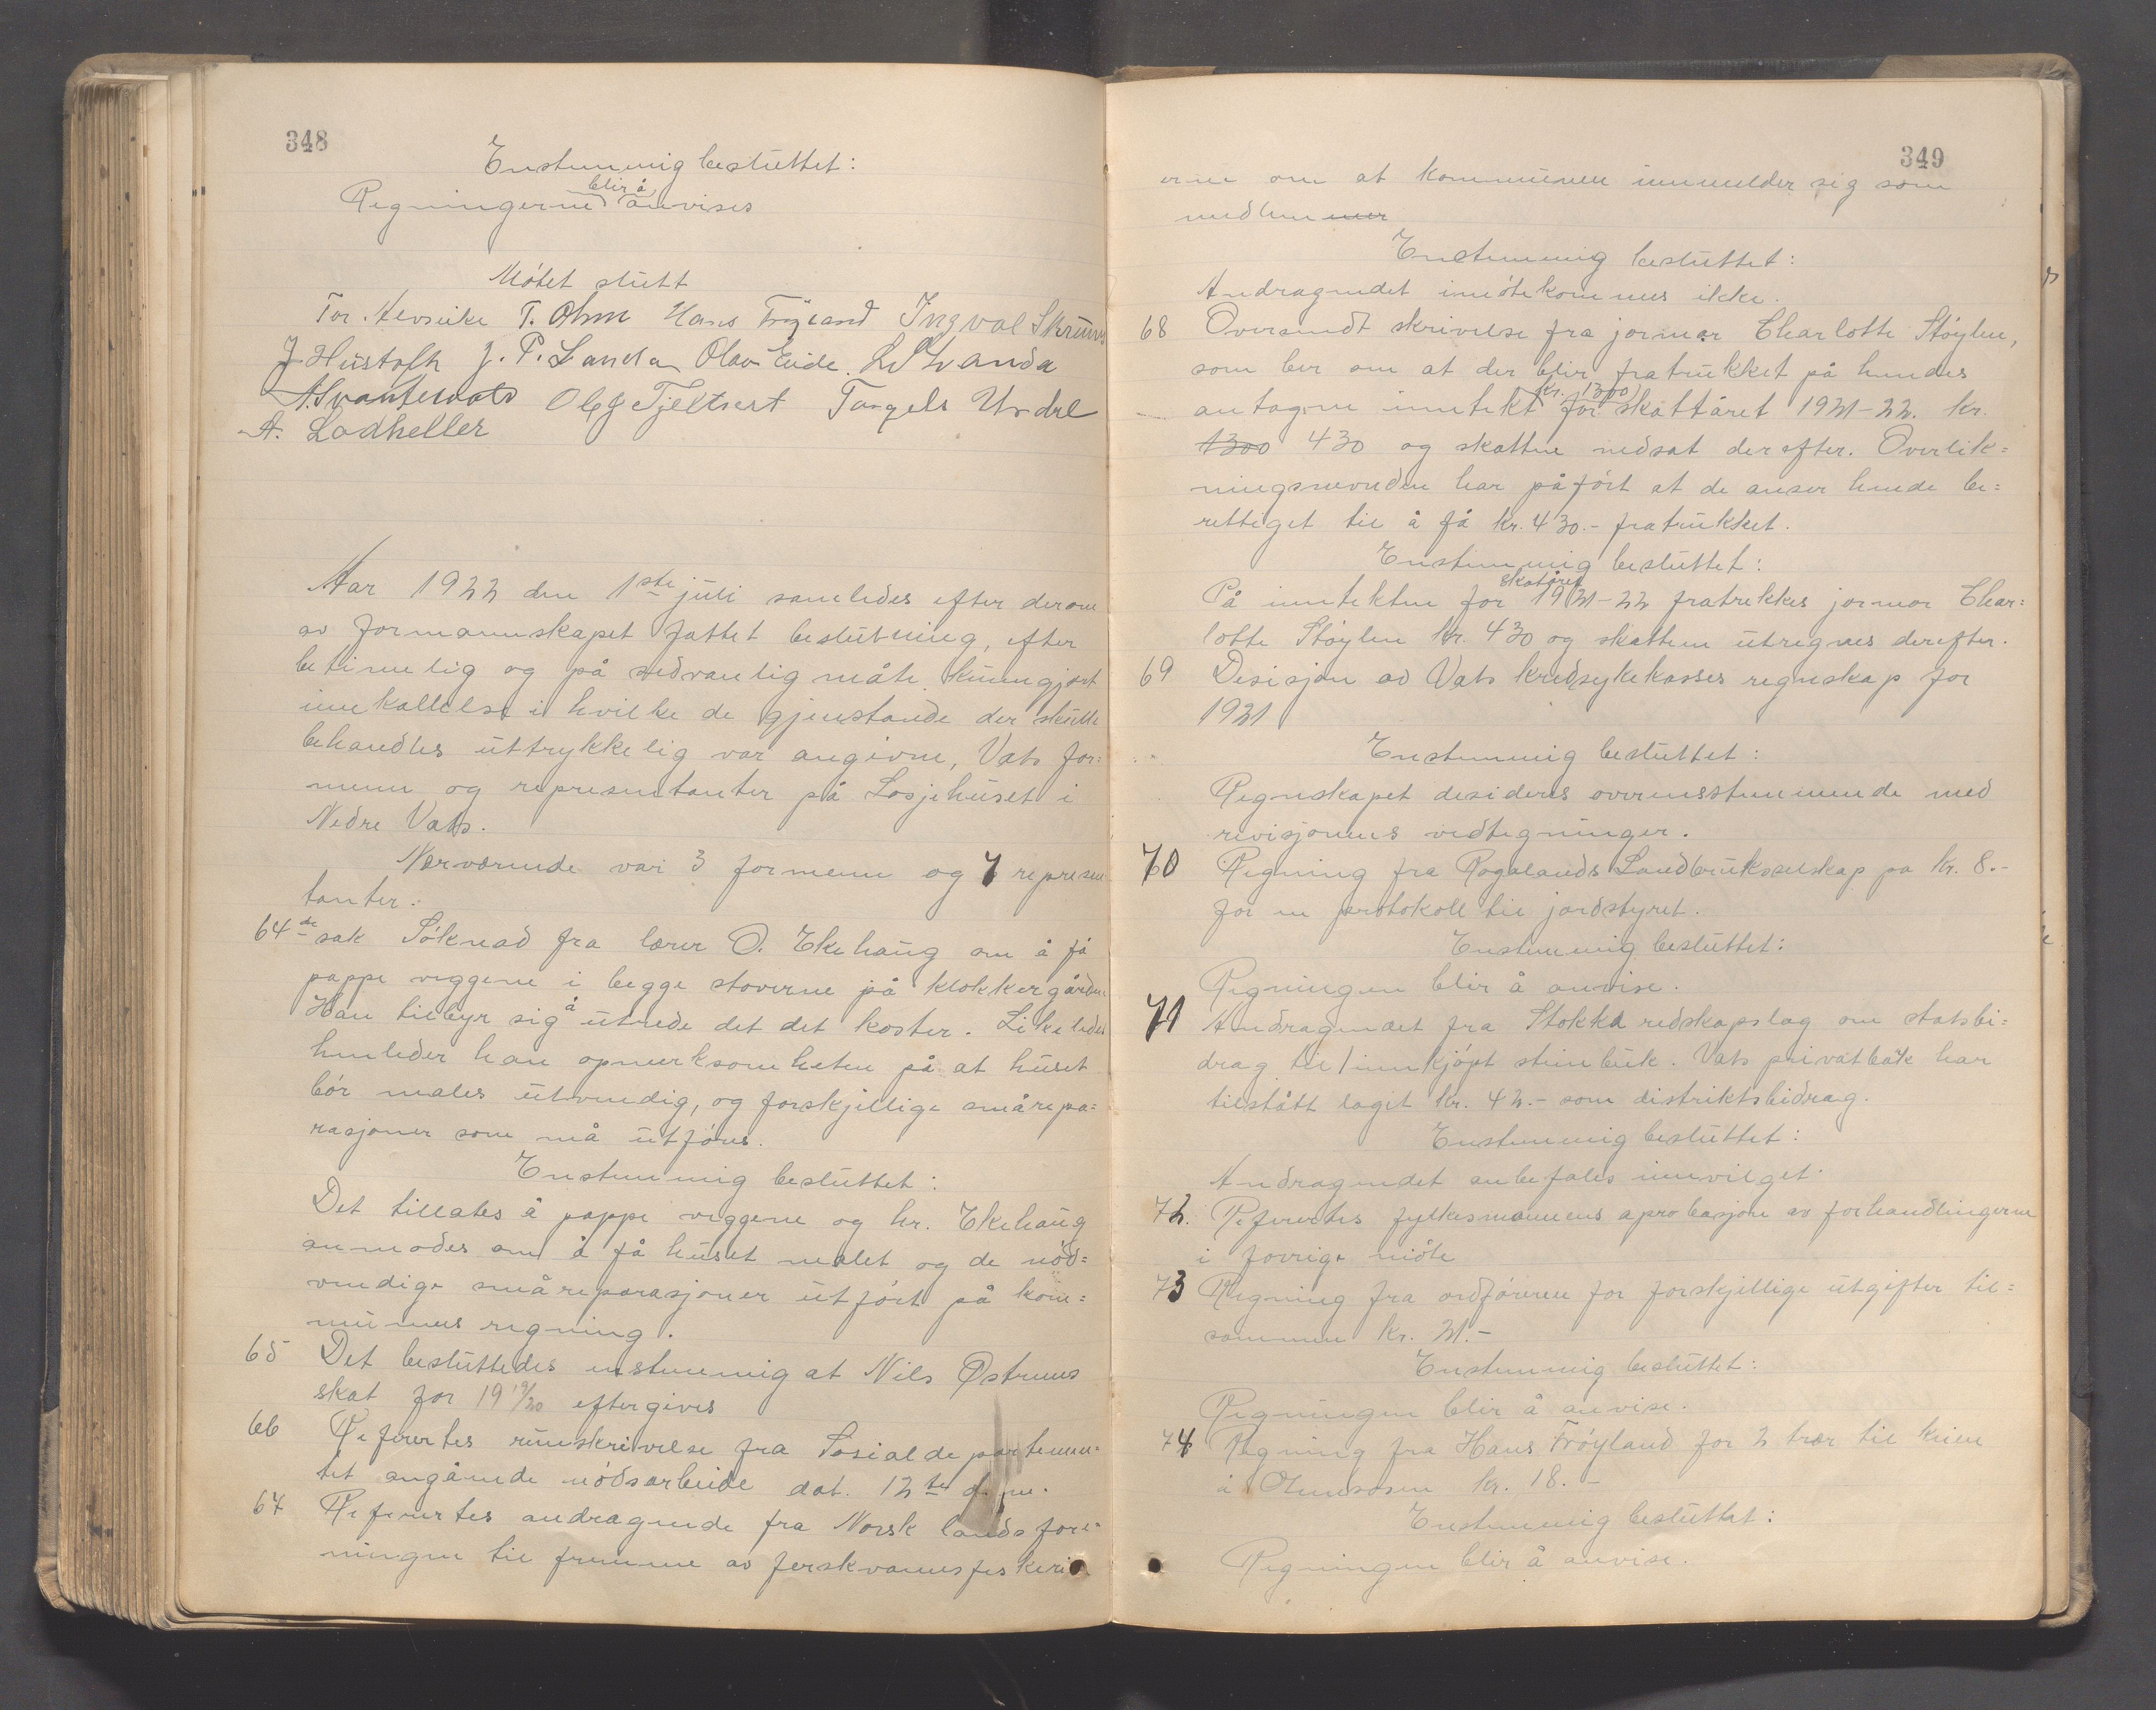 348
Enstemmig besluttet:
blir å
Regningerne anvises
Møtet slutt
Tor. Aevseike T. Ohm Hans Frøyland Ingval Skeiseid
J Hustoft J. P. Landa Olav Eide. L. Stranda
A. Svantesvold Olaf Fjeltveit Torgels Urdal
A. Ladheller
Aar 1922 den 1ste juli samledes efter derom
av formannskapet fattet beslutning, efter
betimelig og på sedvanlig måte kunngjort
innkallelse i hvilke de gjenstande der skulle
behandles uttrykkelig var angivne, Vats for=
menn og representanter på Losjehuset i
Nedre Vats.
Nærværende var 3 formenn og 7 represen
tanter.
64de sak Søknad fra lærer O. Ekehaug om å få
pappe veggene i begge stoverne på klokkergården
Han tilbyr sig å utrede det det koster. Likeledes
henleder han opmerksomheten på at huset
bør males utvendig, og forskjellige smårepa=
rasjoner som må utføres.
Enstemmig besluttet:
Det tillates å pappe veggene og hr. Ekehaug
anmodes om å få huset malet og de nød=
vendige småreparasjoner utført på kom=
munens regning.
65 Det besluttedes enstemmig at Nils Østrems
skat for 19 19/20 eftergives
66 Refertes runskrivelse fra Sosialdepartemen=
tet angående nødsarbeide dat. 12te
67 Refertes andragende fra Norsk landsfore=
ningen til fremme av ferskvannsfiskeri
349
erne om at kommunen innmelder sig som
medlemmer
Enstemmig besluttet:
Andragendet imøtekommes ikke.
68 Oversendt skrivelse fra jormor Charlotte Støylen,
som ber om at der blir fratrukket på hendes
kr. 1300
antagne inntekt for skattåret 1921-22. kr.
1300 430 og skatten nedsat derefter. Overlik=
ningsnevnden har påført at de anser hende be=
rettiget til å få kr. 430.- fratrukket.
Enstemmig besluttet:
skatåret
På inntekten for 1921-22 fratrekkes jormor Char=
lotte Støylen kr. 430 og skatten utregnes derefter.
69 Desisjon av Vats kredsykekasses regnskap for
1921
Enstemmig besluttet:
Regnskapet desideres overensstemmende med
revisjonens vedtegninger.
70 Regning fra Rogalands Landbruksselskap pa kr. 8.-
for en protokoll til jordstyret.
Enstemmig besluttet:
Regningen blir å anvise.
71 Andragendet fra Stokka redskapslag om statsbi=
drag til innkjøpt steinbuk. Vats privatbank har
tilstått laget kr. 42.- som distriktsbidrag.
Enstemmig besluttet:
Andragendet anbefales innvilget
72. Refertes fylkesmannens aprobasjon av forhandlingerne
i forrige møte
73 Regning fra ordføreren for forskjellige utgifter til=
sammen kr. 21.-
Enstemmig besluttet:
Regningen blir å anvise.
74 Regning fra Hans Frøyland for 2 trær til kaien
i kr. 18.-
Enstemmig besluttet:
Regningen blir å anvise.